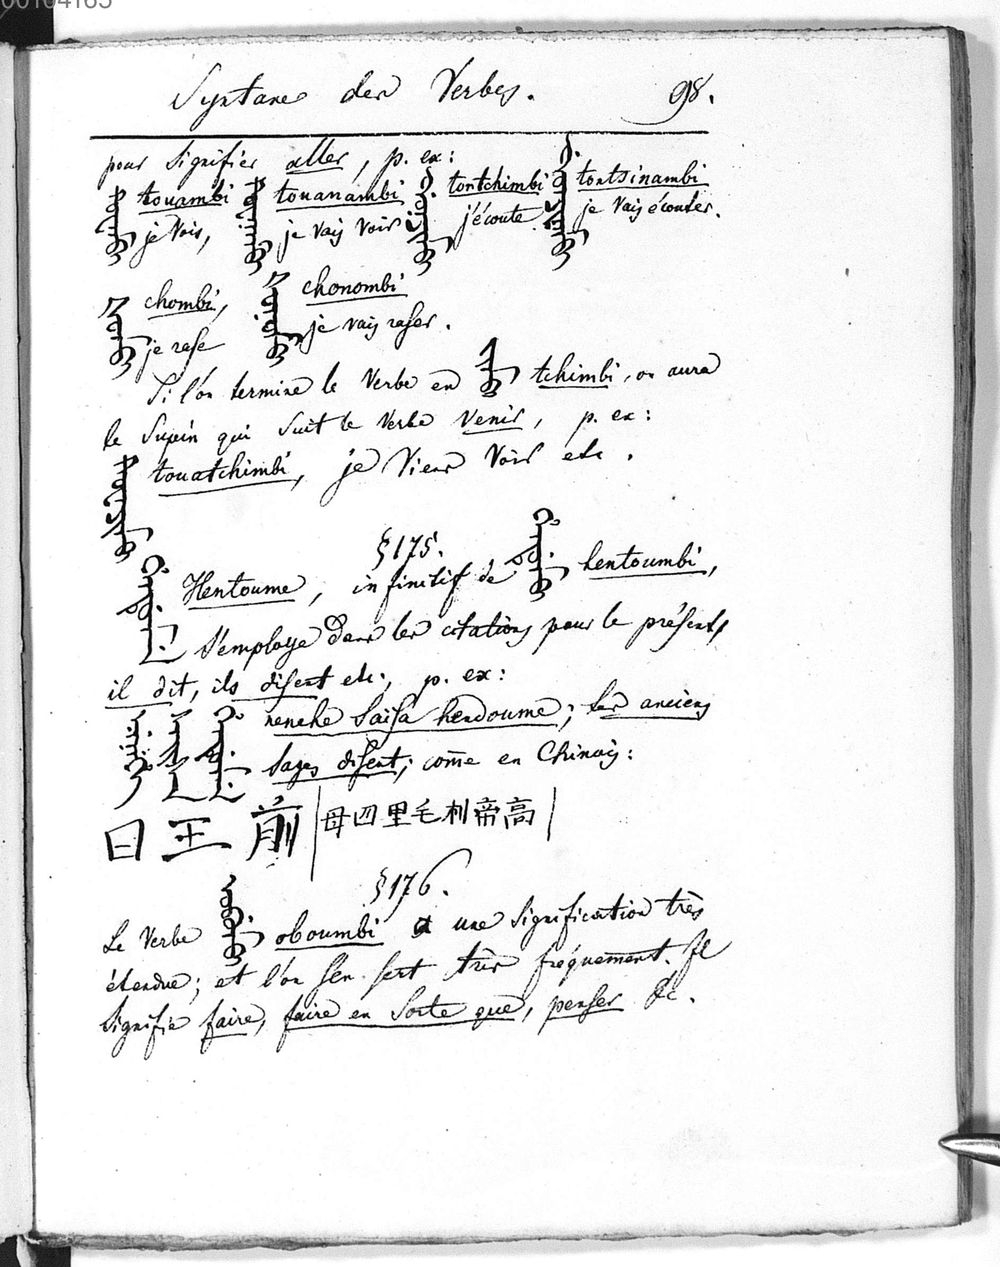 00104165
Syntaxe des Verbes. 98.
pour signifier aller, p. ex:
ᡨᡠᠸᠠᠮᠪᡳ touambi ᡨᡠᠸᠠᠨᠠᠮᠪᡳ touanambi tontchimbi tontsinambi
je vois, je vais voir j'écoute. je vais écouter.
chombi, chonombi
je rase je vais raser.
Si l'on termine le Verbe en tchimbi, on aura
le Supin qui suit le Verbe venir, p. ex:
touatchimbi, je viens voir etc.
§175.
Hentoume, infinitif de hentoumbi,
s'employe dans les citations pour le présent,
il dit, ils disent etc, p. ex:
nenehe saïsa hendoume; les anciens
sages disent; come en Chinois:
曰 王 前 母四里毛利帝高
§176.
Le Verbe oboumbi a une signification très
étendue; et l'on s'en sert très fréquemment. Il
signifie faire, faire en sorte que, penser &c.